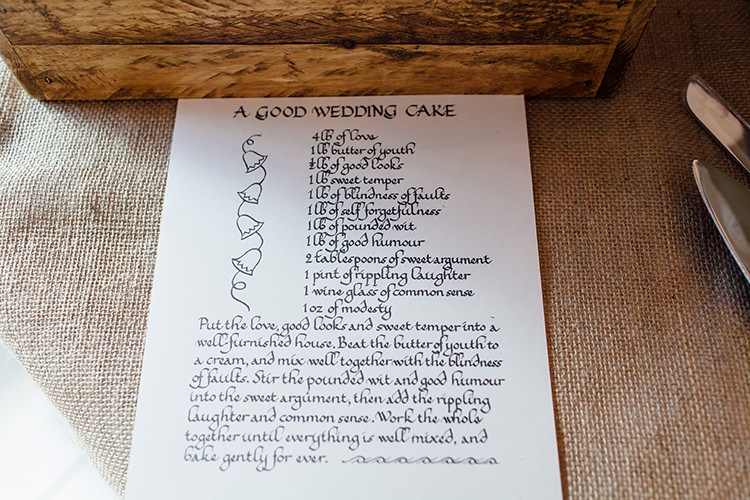 A GOOD WEDDING CAKE
4 lb of love
1 lb butter of youth
½ lb of good looks
1 lb sweet temper
1 lb of blindness of faults
1 lb of self forgetfulness
1 lb of pounded wit
1 lb of good humour
2 tablespoons of sweet argument
1 pint of rippling laughter
1 wine glass of common sense
1 oz of modesty
Put the love, good looks and sweet temper into a
well-furnished house. Beat the butter of youth to
a cream, and mix well together with the blindness
of faults. Stir the pounded wit and good humour
into the sweet argument, then add the rippling
laughter and common sense. Work the whole
together until everything is well mixed, and
bake gently for ever.